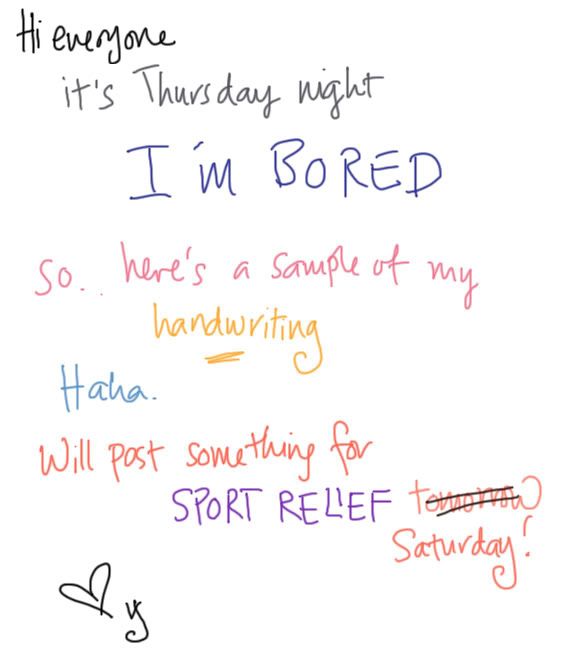 Hi everyone
it's Thursday night
I'm BORED
So.. here's a sample of my
handwriting
Haha.
Will post something for
SPORT RELIEF tomorrow
Saturday!
♡ y